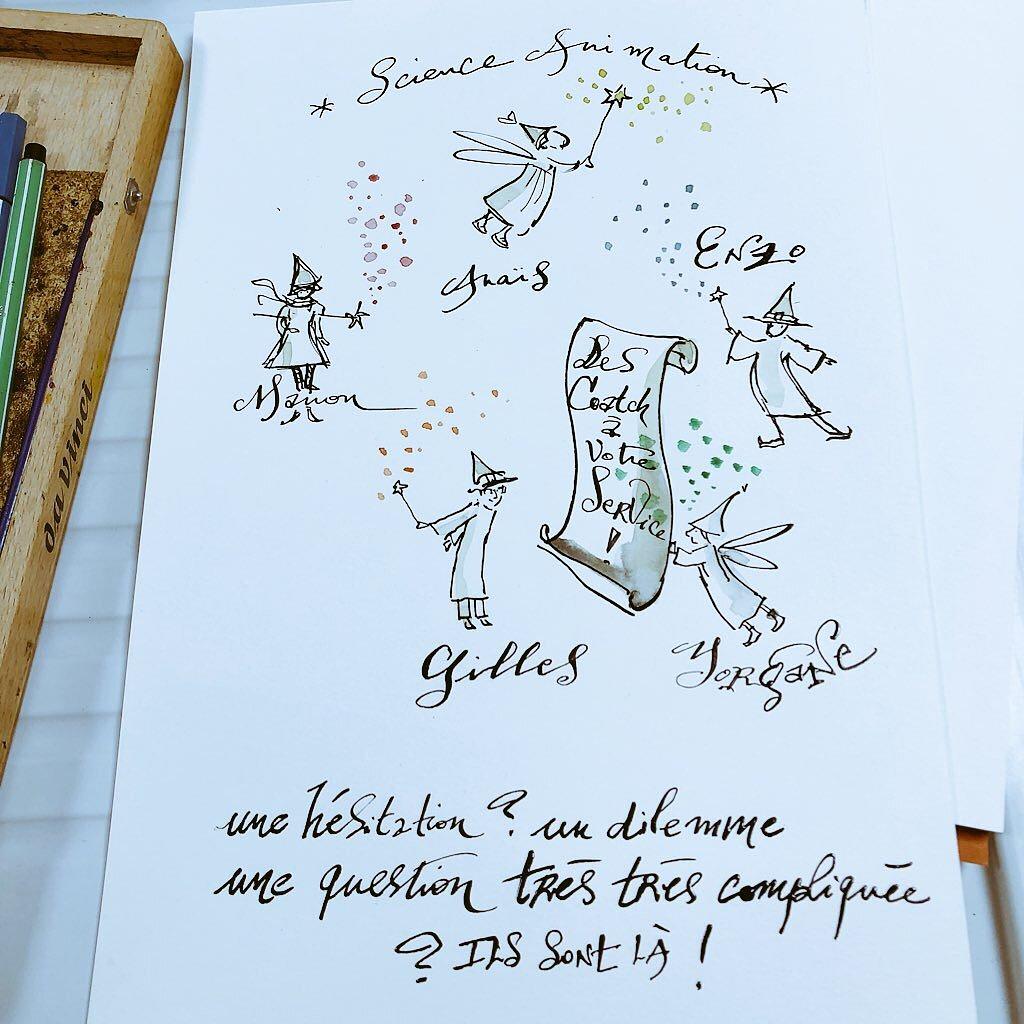 * Science Animation *
Anaïs
Enzo
Manon
Des
Coatch
à
Votre
Service
!
Gilles
Morgane
une hésitation ? un dilemme
une question très très compliquée
? ILS SONT LÀ !
da Vinci